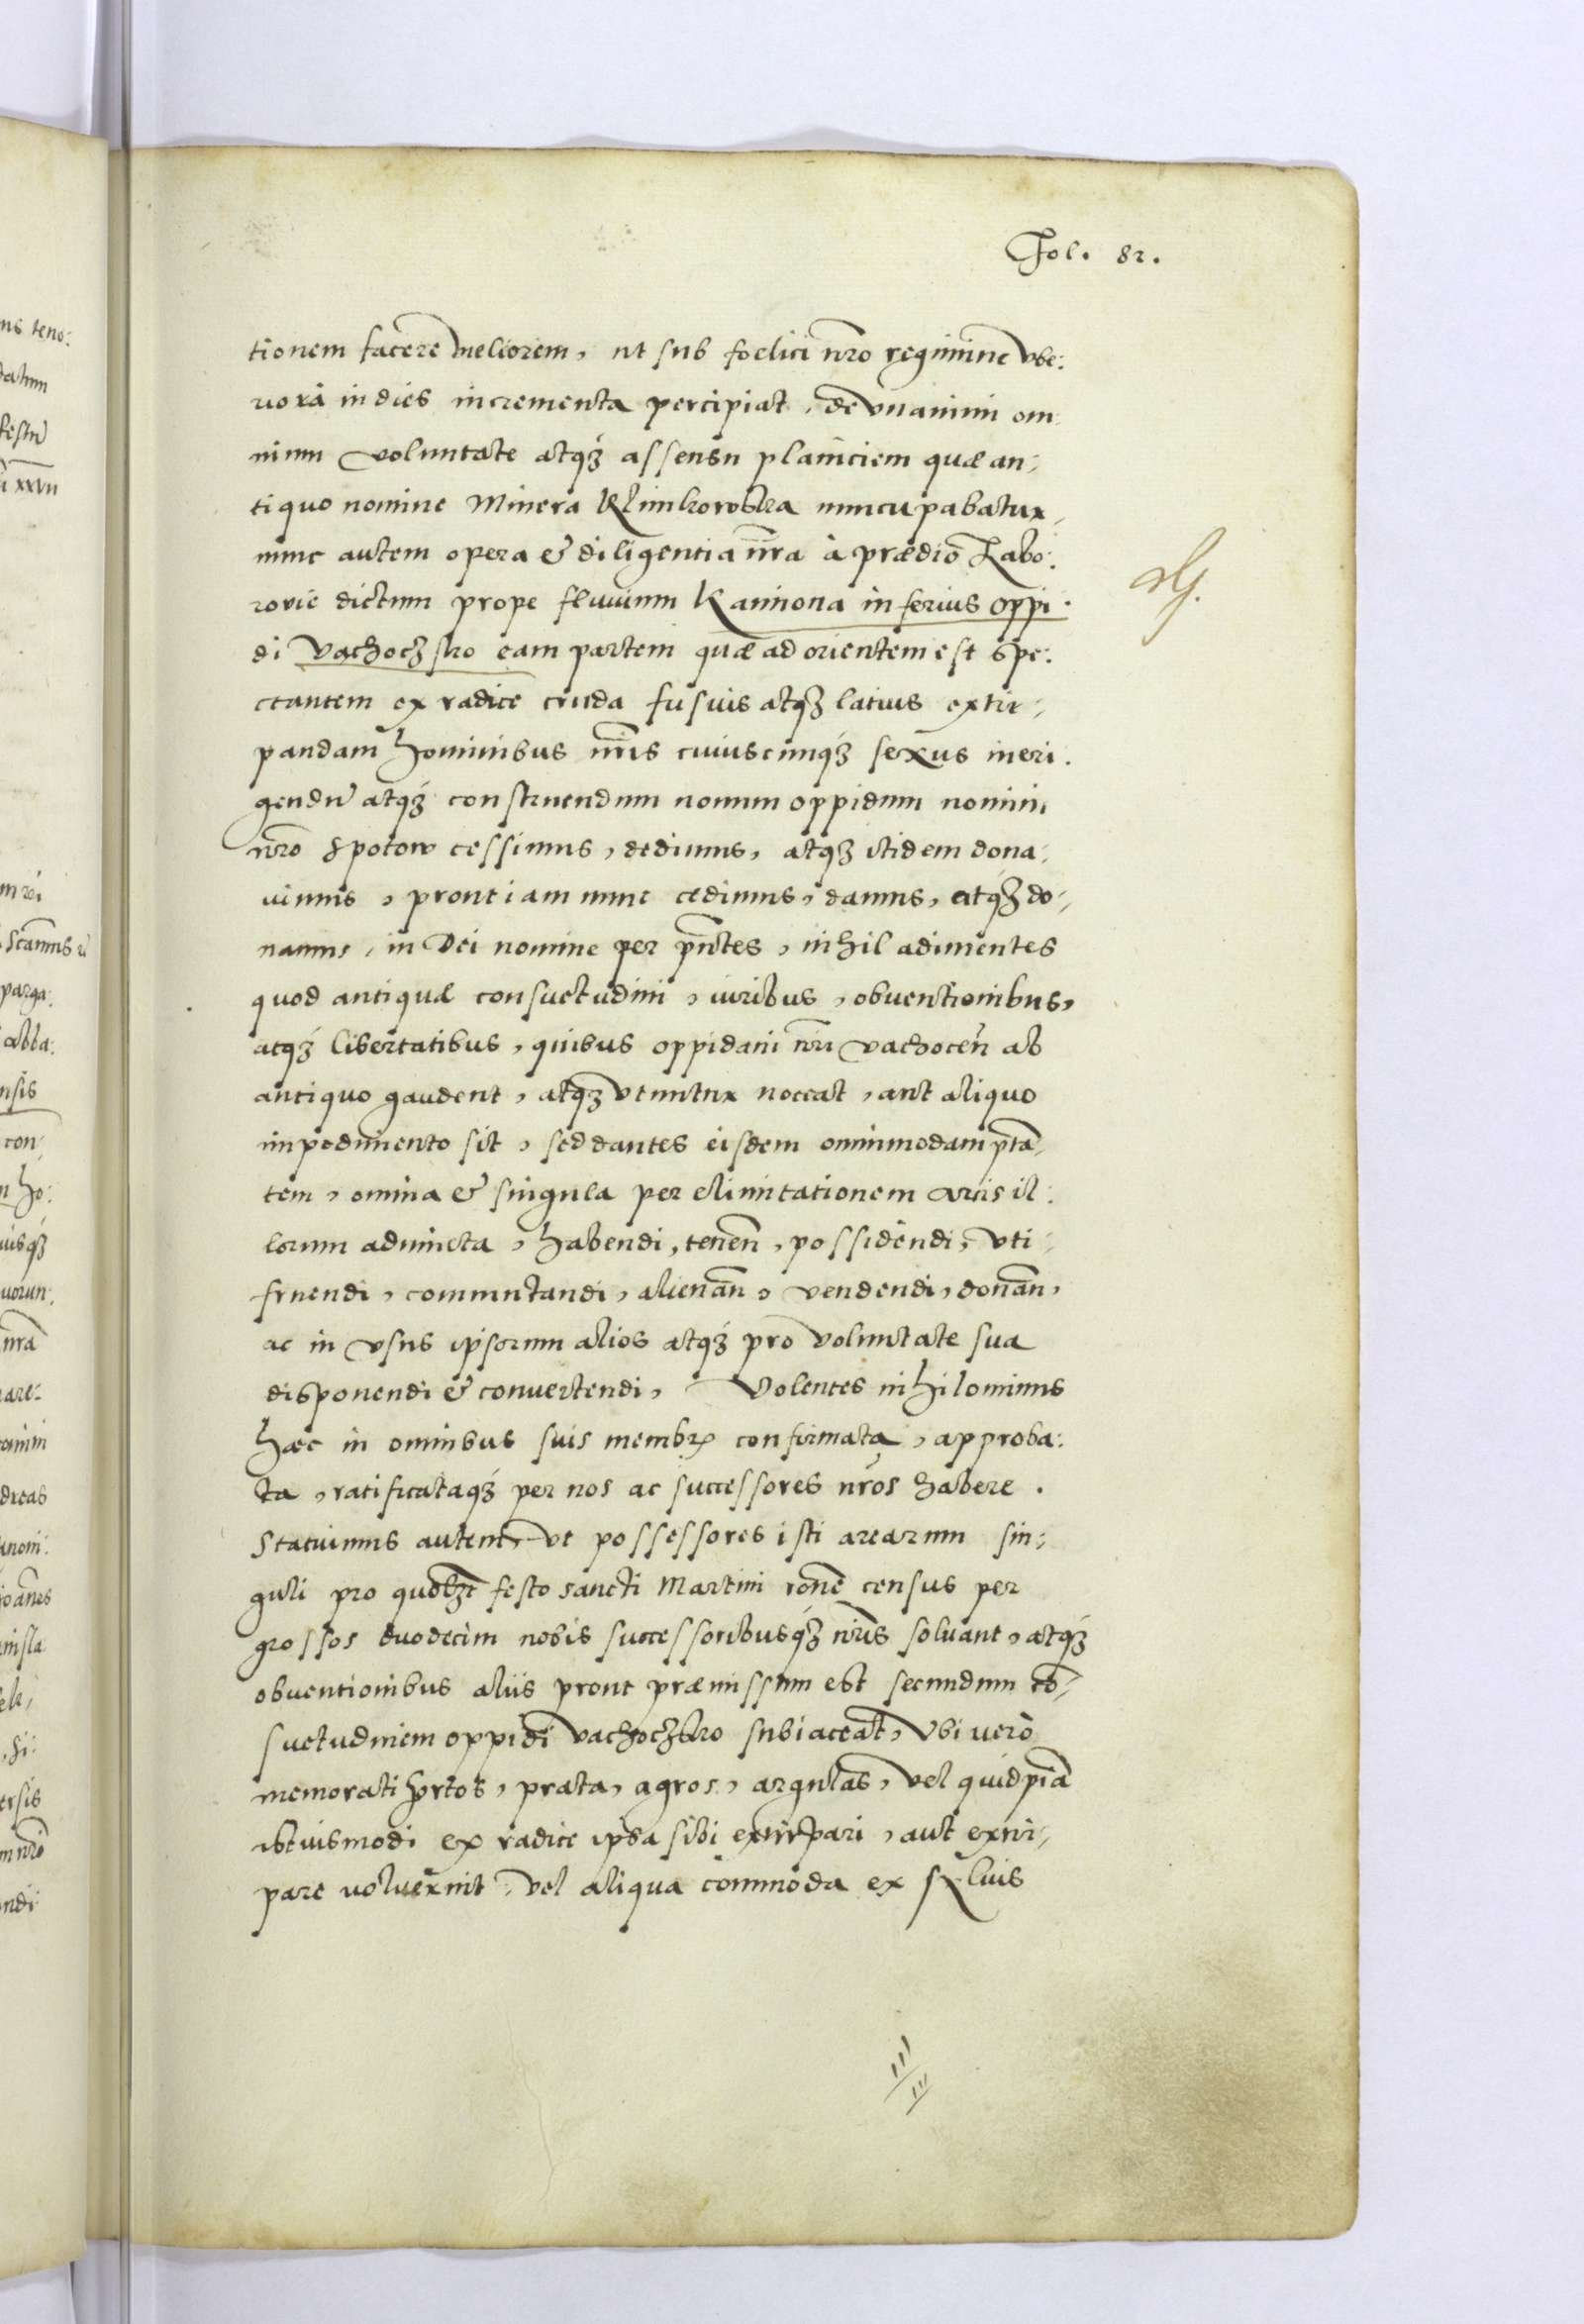 Fol. 82.
tionem facere meliorem, ut sub foelici nrō regimine vbe:
riora in dies incrementa percipiat, de vnanimi om
nium voluntate atqʒ assensu planiciem quæ an-
tiquo nomine Minera Klimkowska nuncupabatur,
nunc autem opera & diligentia nrā à prædio Labo:
rovie dictum prope fluvium Kamiona inferius oppi
di Vachoczsko eam partem quæ ad orientem est spe:
ctantem ex radice cruda fusius atqʒ latius extir-
pandam hominibus nrīs cuiuscunqʒ sexus in eri.
gendū atqʒ construendum nouum oppidum nomini
nrō Spotow cessimus, dedimus, atqʒ itidem dona-
uimus, prout iam nunc cedimus, damus, atqʒ do-
namus, in Dei nomine per pn̄tes, nihil adimentes
quod antiquæ consuetudini, iuribus, obuentionibus,
atqʒ libertatibus, quibus oppidani nrī Vachocen̄ ab
antiquo gaudent, atqʒ vtuntur noceat, aut aliquo
impedimento sit, sed dantes eisdem omnimodam ptā-
tem, omnia & singula per elimitationem arcis il:
lorum adiuncta, habendi, tenen̄, possidendi, vti-
fruendi, commutandi, alienan̄, vendendi, donan̄,
ac in vsus ipsorum alios atqʒ pro voluntate sua
disponendi & convertendi, Volentes nihilominus
hæc in omnibus suis membrꝭ confirmata, approba:
ta, ratificataqʒ per nos ac successores nrōs habere.
Statuimus autem, vt possessores isti arearum sin-
guli pro quolʒt festo sancti Martini rōne census per
grossos duodecim nobis successoribusqʒ nrīs soluant, atqʒ
obuentionibus aliis prout præmissum est secundum cō-
suetudinem oppidi Vachoczsko subiaceāt, Vbi verò
memorati hortos, prata, agros, argulas, vel quidpiā
istiusmodi ex radice ipsa sibi extirpari, aut extir-
pare voluerint, vel aliqua commoda ex syluis